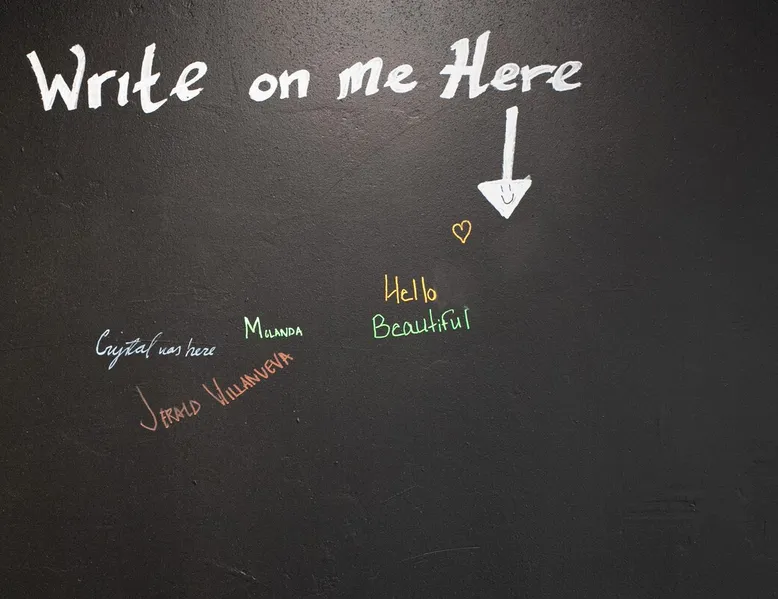 Write on me Here
Hello
Beautiful
MULANDA
Crystal was here
JERALD VILLANUEVA